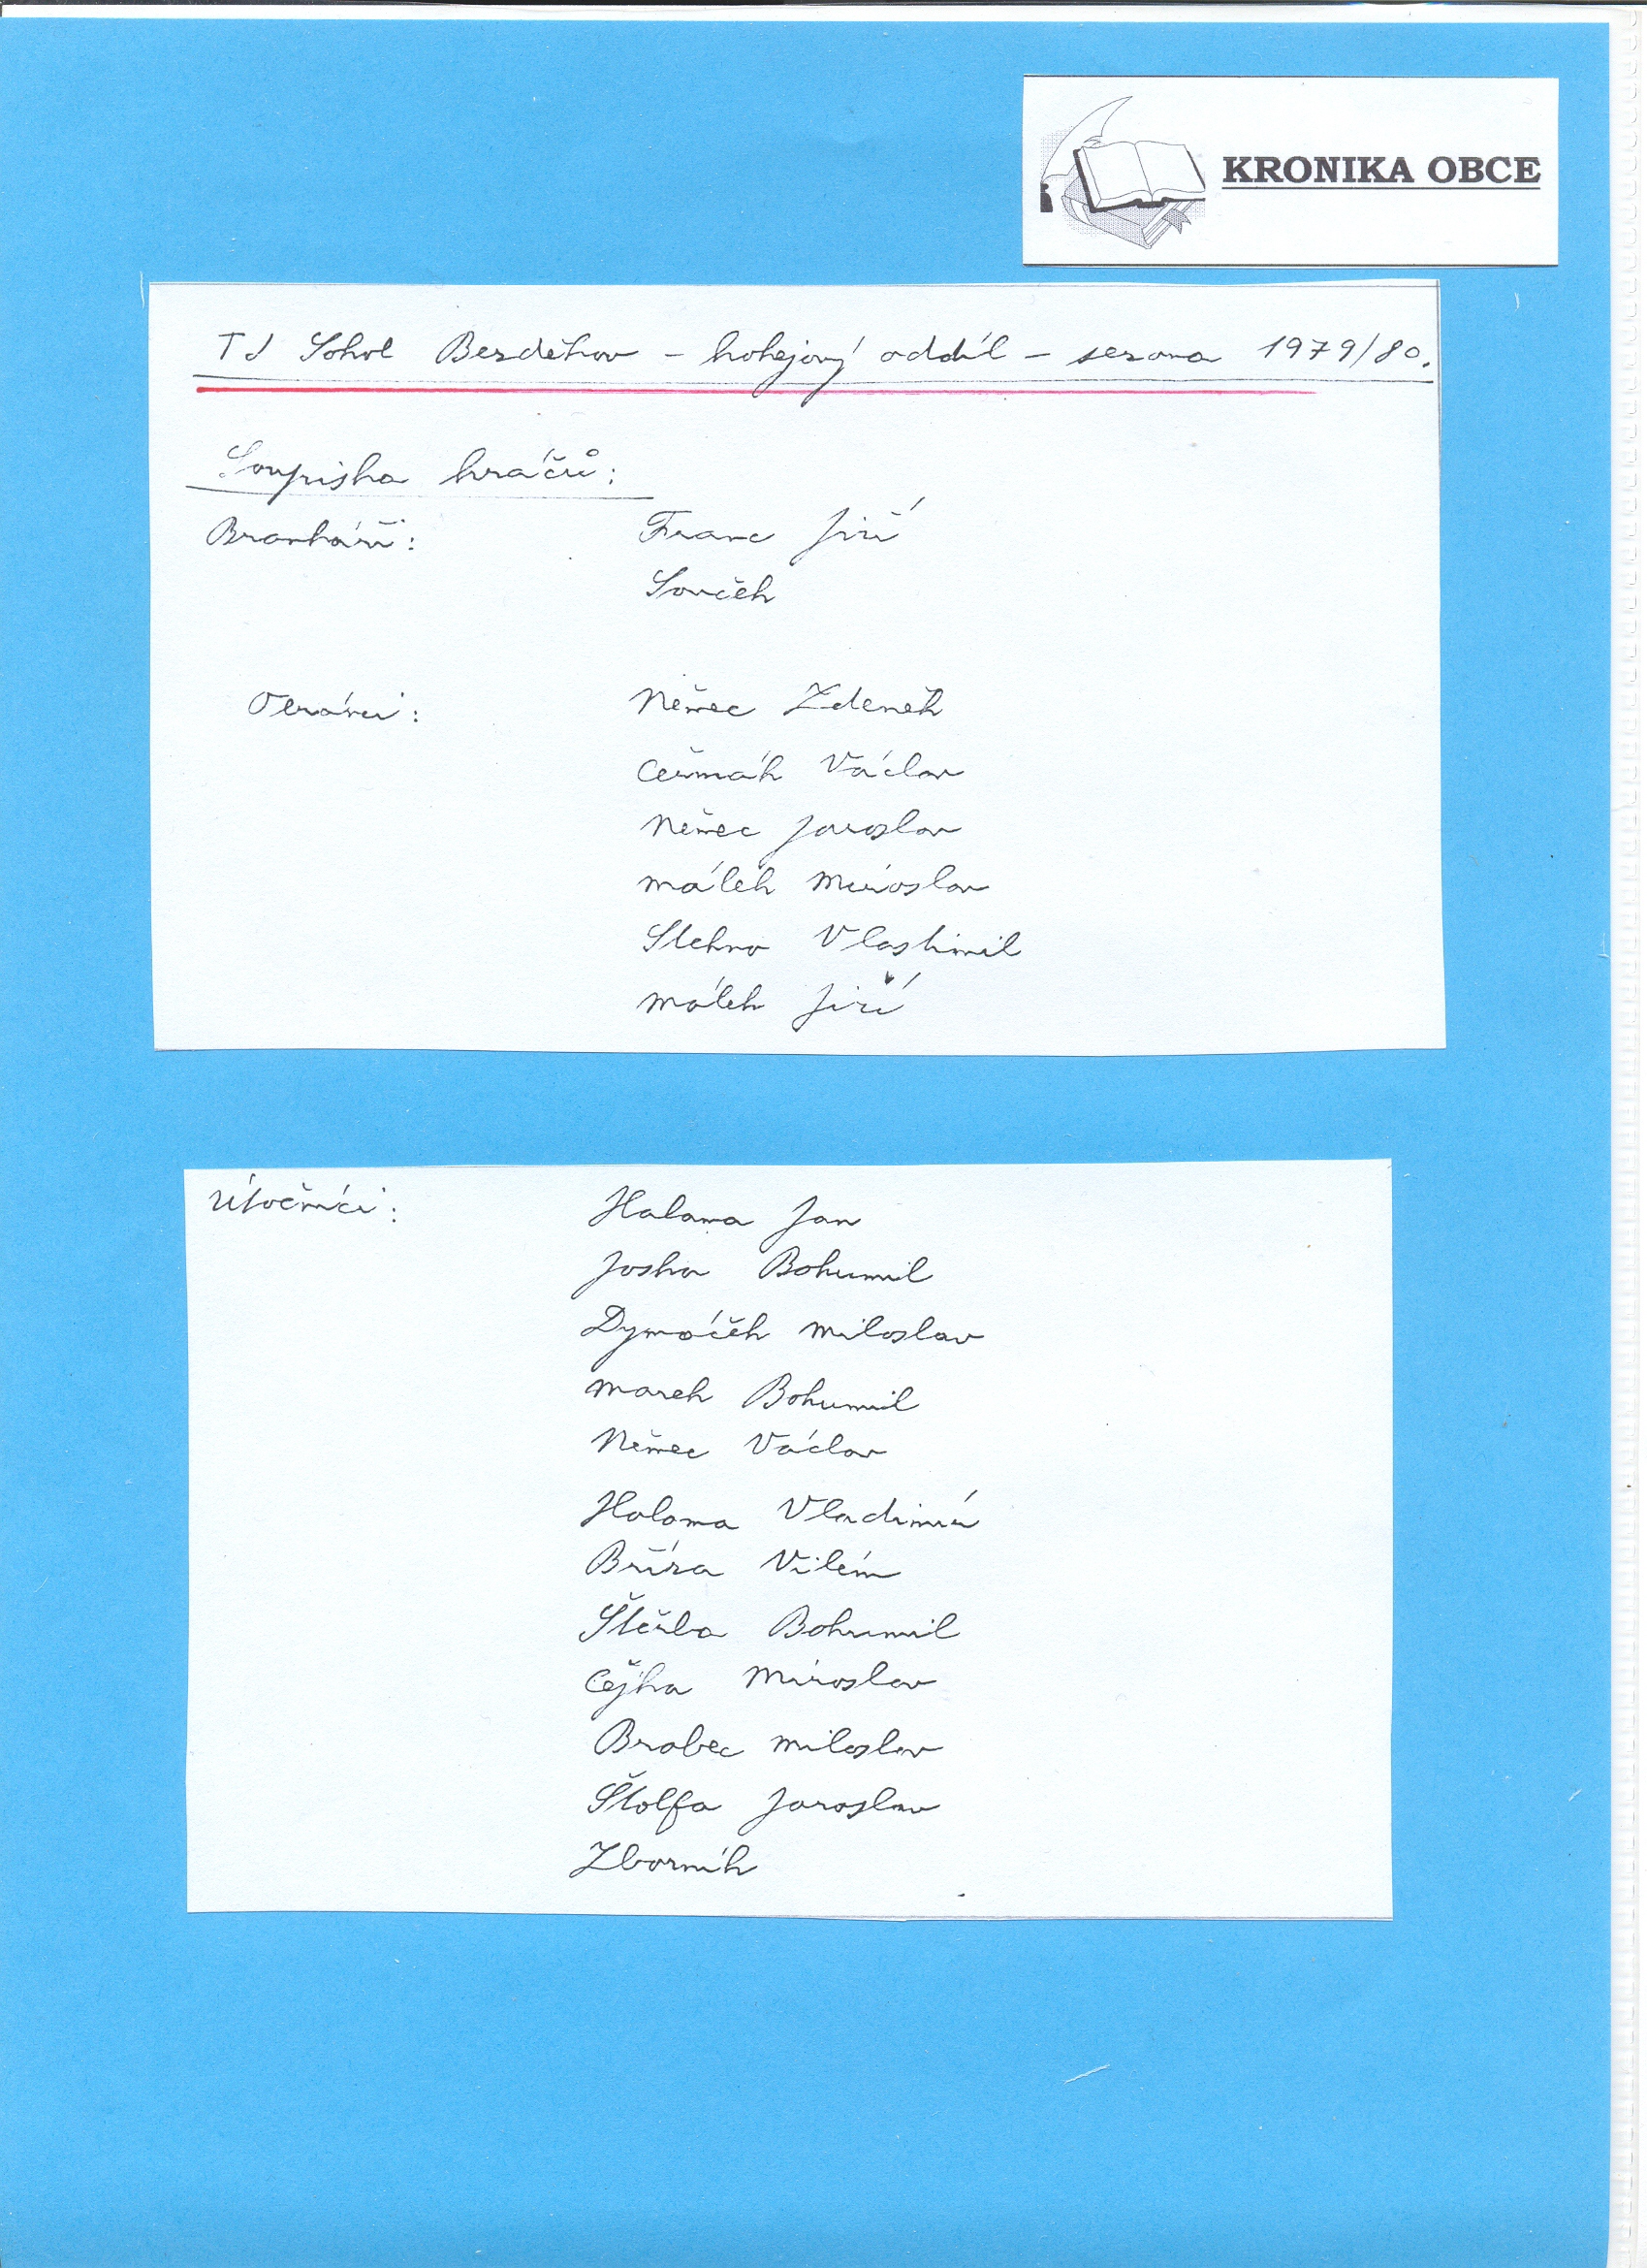 KRONIKA OBCE
TJ Sokol Bezděkov - hokejový oddíl - sezona 1979/80.
Soupiska hráčů:
Brankáři: Franc Jiří
Souček
Obránci: Němec Zdeněk
Čermák Václav
Němec Jaroslav
Málek Miroslav
Stehno Vlastimil
Málek Jiří
Útočníci: Halama Jan
Joska Bohumil
Dymáček Miloslav
Marek Bohumil
Němec Václav
Halama Vladimír
Bříza Vilém
Štěrba Bohumil
Čejka Miroslav
Brabec Miloslav
Štolfa Jaroslav
Zborník